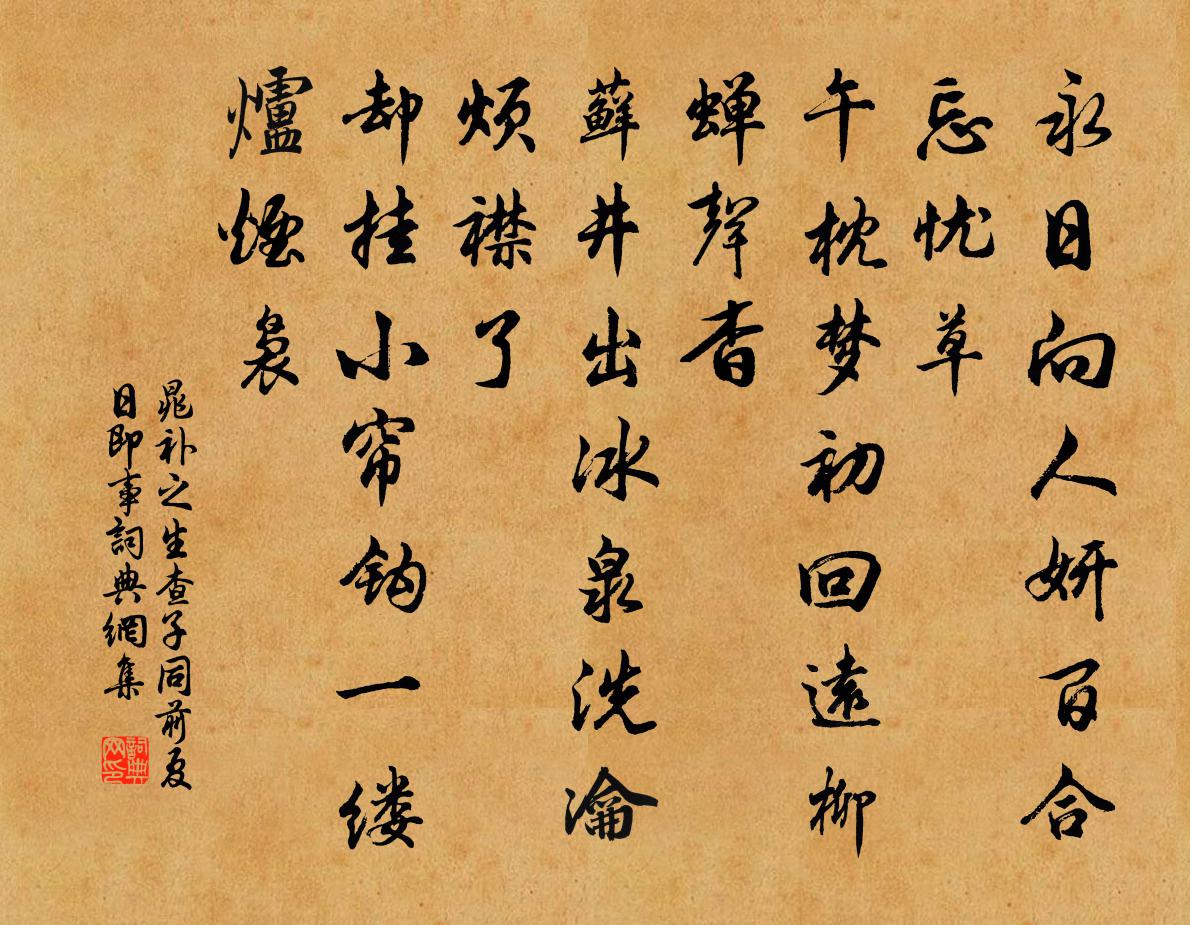 永日向人妍百合
忘忧草
午枕梦初回遠柳
蝉聲杳
蘚井出冰泉洗瀹
煩襟了
却挂小帘钩一缕
爐煙裊
晁补之生查子同前夏
日即事詞典網集
詞典网印